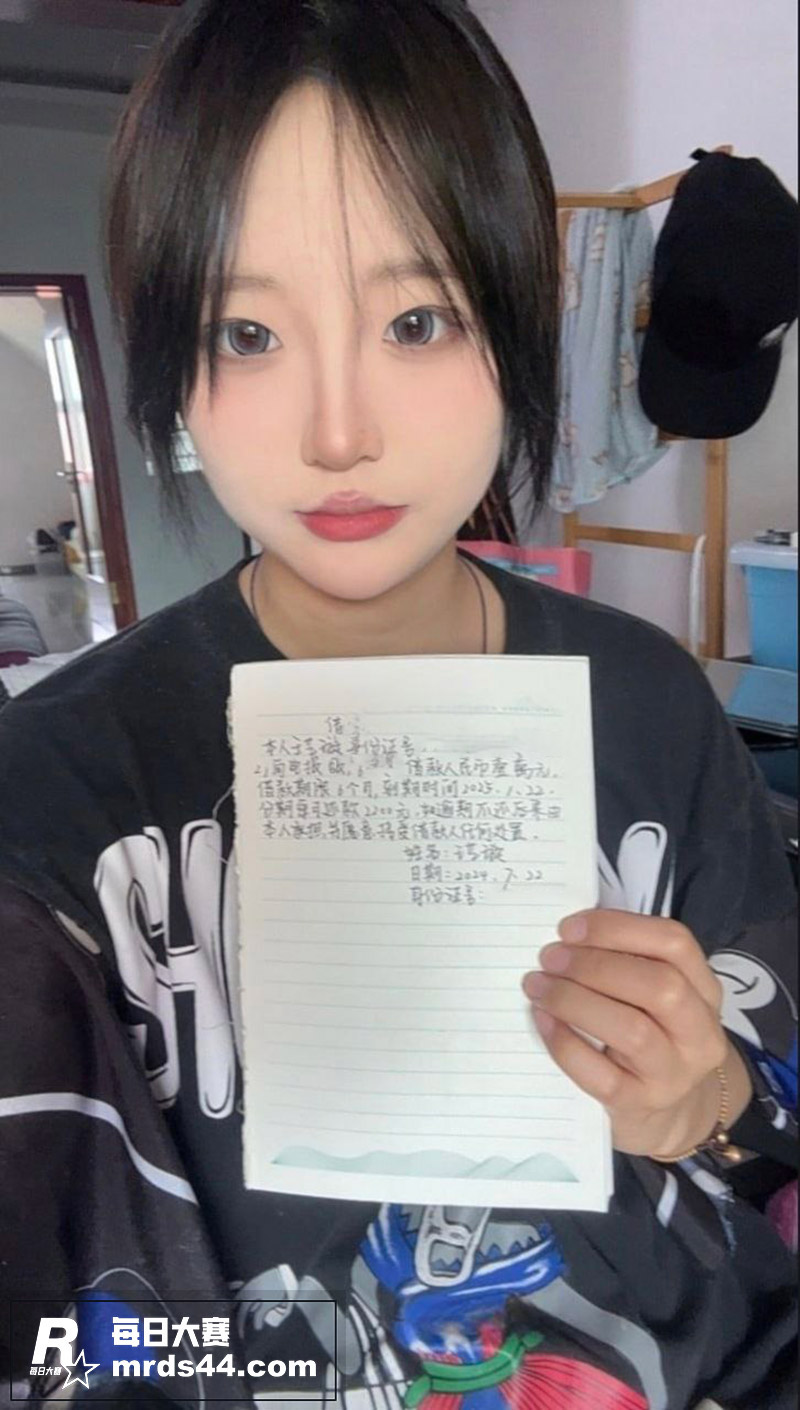 借
本人 身份证号
向电报 借款人民币壹萬元.
借款期限6个月,到期时间2025.1.22.
分期每月还款2200元,如逾期不还后果由
本人承担,并愿意接受借款人任何处置.
姓名:
日期:2024.7.22
身份证号:
SH
R
每日大赛
每日大赛
mrds44.com